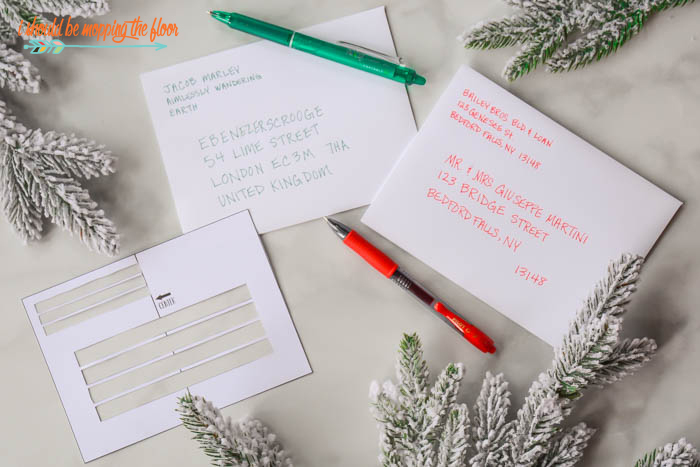 i should be mopping the floor
JACOB MARLEY
AIMLESSLY WANDERING
EARTH
EBENEZER SCROOGE
54 LIME STREET
LONDON EC3M 7HA
UNITED KINGDOM
BAILEY BROS. BLD. & LOAN
123 GENESEE ST
BEDFORD FALLS, NY 13148
MR. & MRS GIUSEPPE MARTINI
123 BRIDGE STREET
BEDFORD FALLS, NY
13148
CENTER